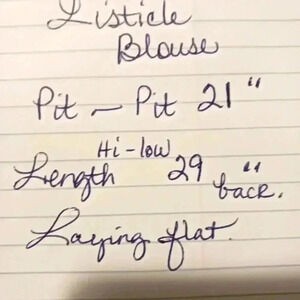 Listicle
Blouse
Pit - Pit 21"
Hi-low
Length 29" back.
Laying flat.